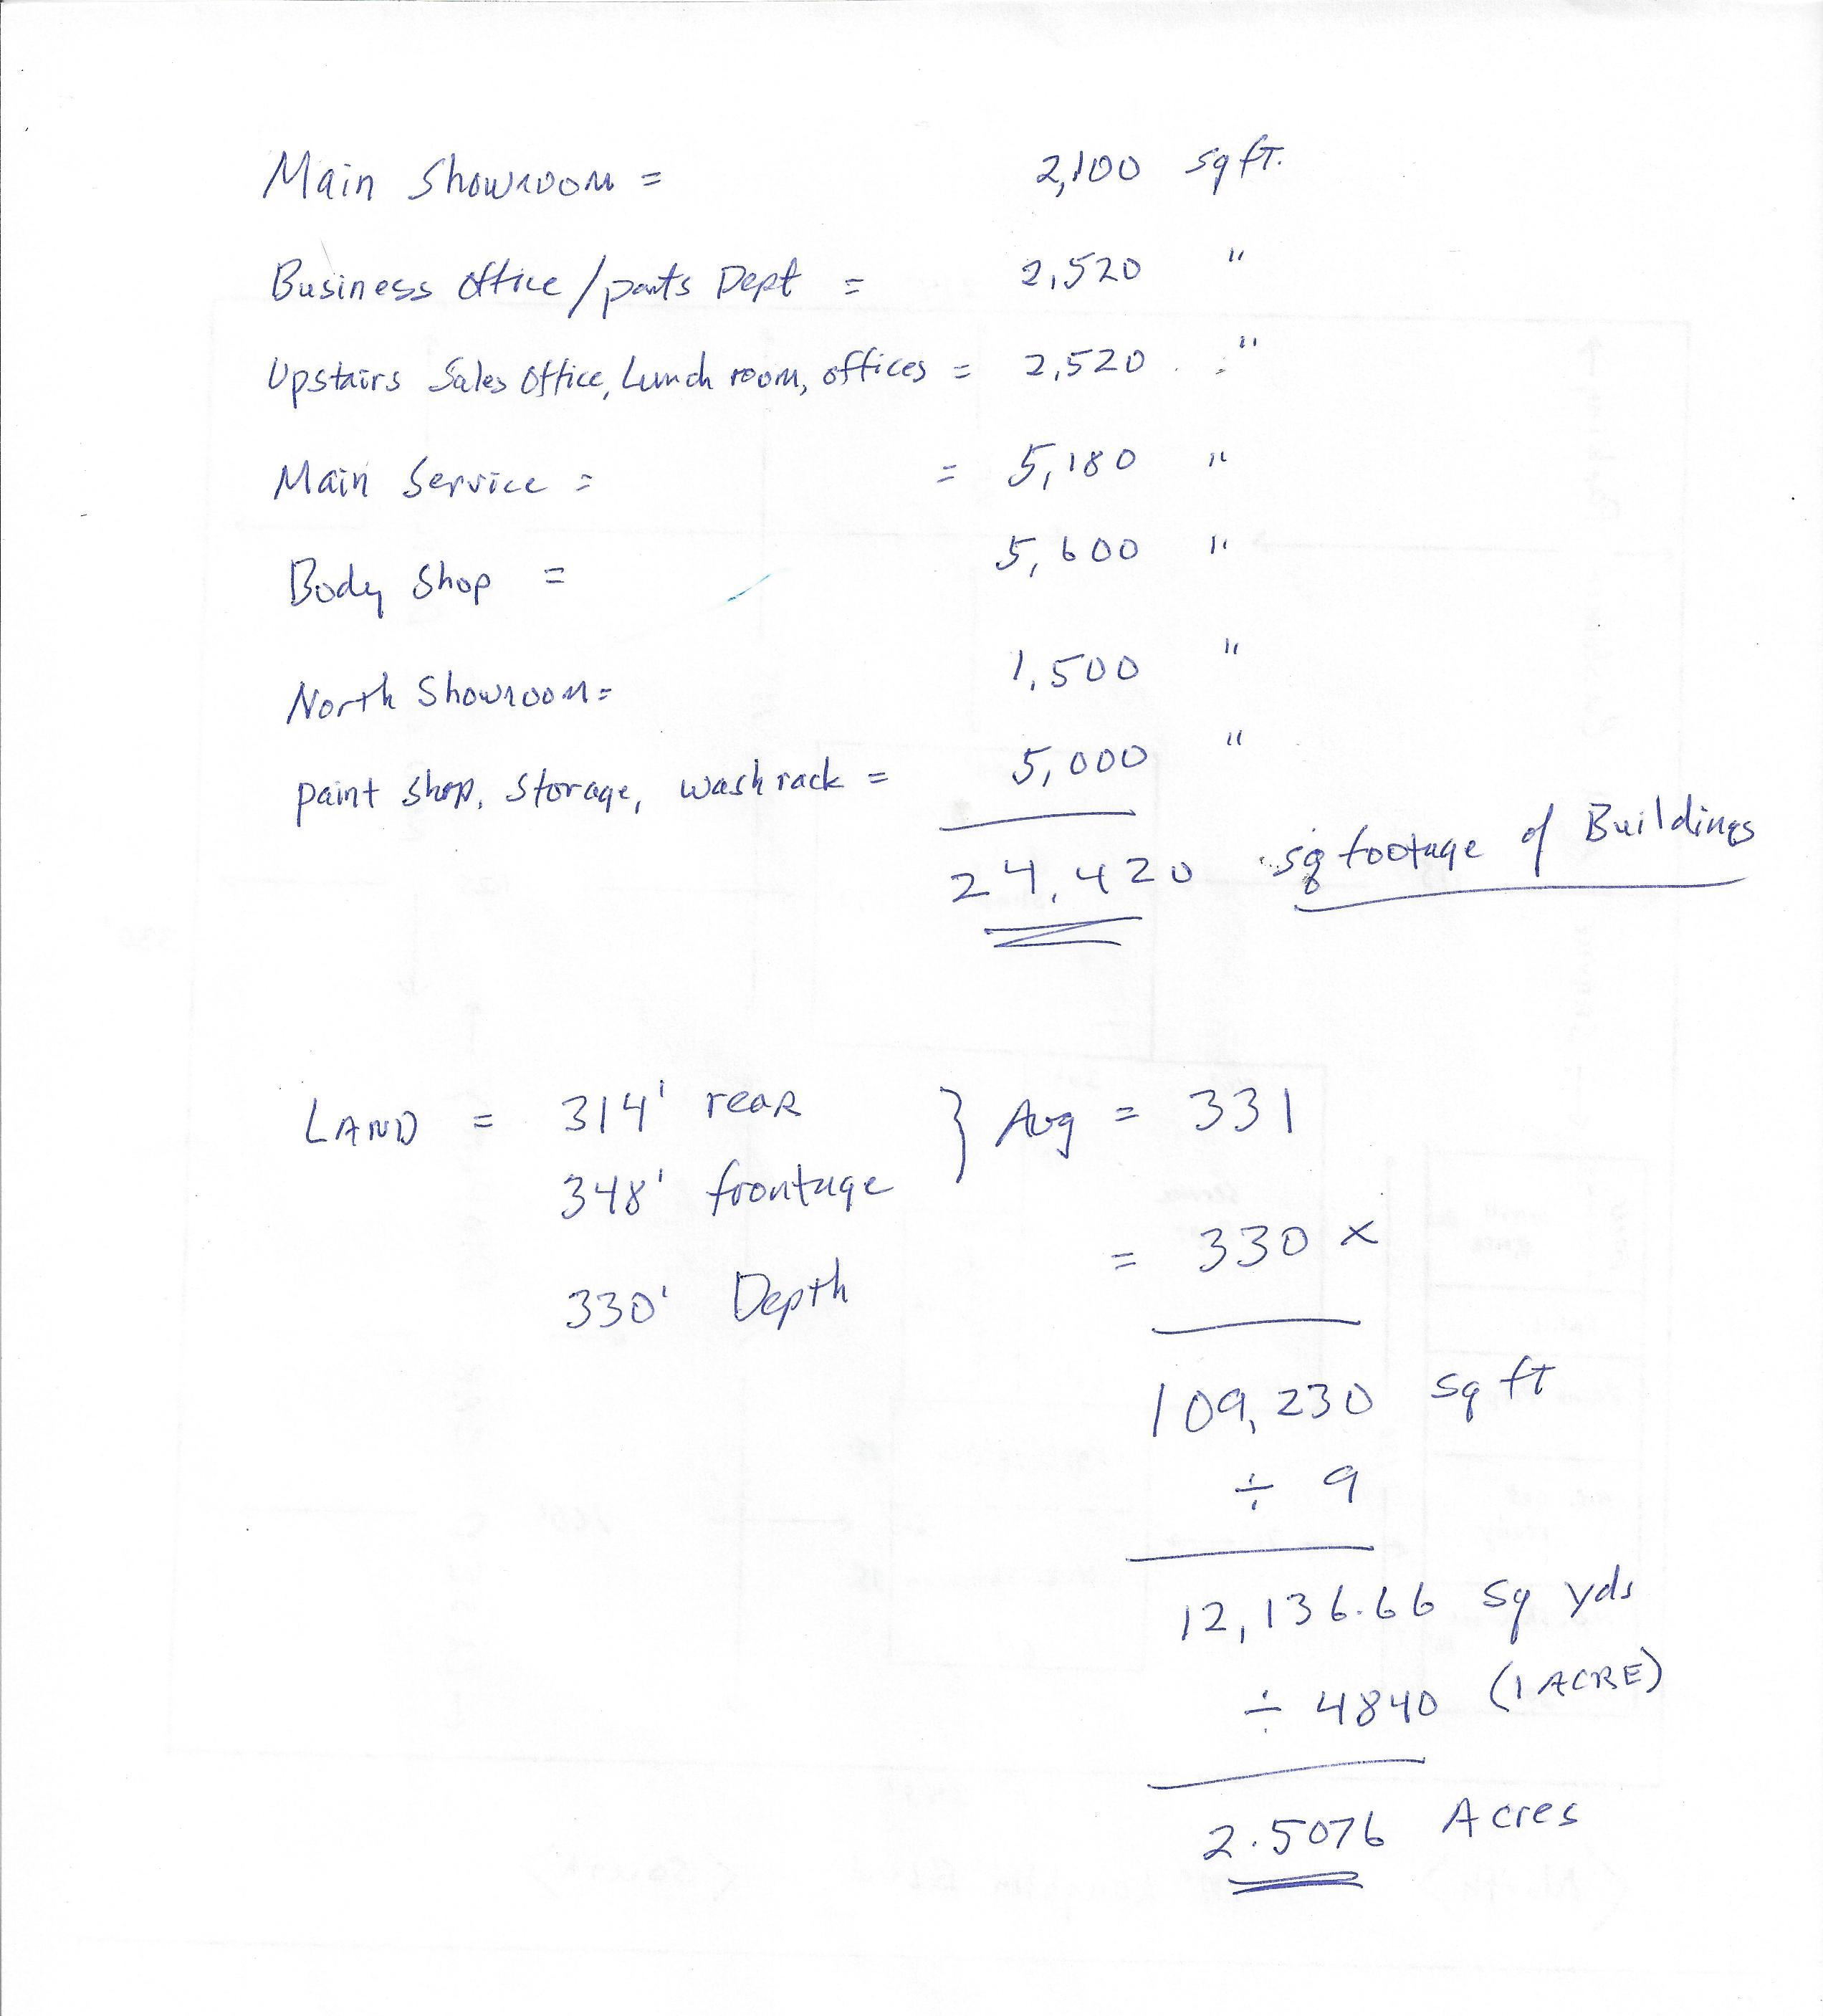 Main Showroom = 2,100 sq ft.
Business Office / parts Dept = 2,520 "
Upstairs Sales Office, Lunch room, offices = 2,520 "
Main Service = = 5,180 "
Body Shop = 5,600 "
North Showroom = 1,500 "
paint shop, storage, wash rack = 5,000 "
24,420 sq footage of Buildings
LAND = 314' rear } Avg = 331
348' frontage
= 330 x
330' Depth
109,230 sq ft
÷ 9
12,136.66 sq yds
÷ 4840 (1 ACRE)
2.5076 Acres